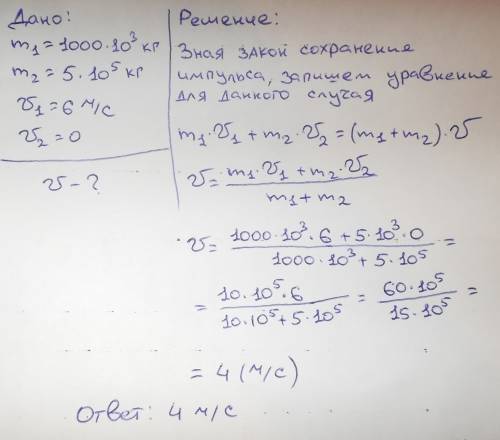 Дано:
m₁ = 1000·10³ кг
m₂ = 5·10⁵ кг
v₁ = 6 м/с
v₂ = 0
v - ?
Решение:
Зная закон сохранения
импульса, запишем уравнение
для данного случая
m₁·v₁ + m₂·v₂ = (m₁ + m₂)·v
v = (m₁·v₁ + m₂·v₂) / (m₁ + m₂)
v = (1000·10³·6 + 5·10³·0) / (1000·10³ + 5·10⁵) =
= (10·10⁵·6) / (10·10⁵ + 5·10⁵) = (60·10⁵) / (15·10⁵) =
= 4 (м/с)
Ответ: 4 м/с